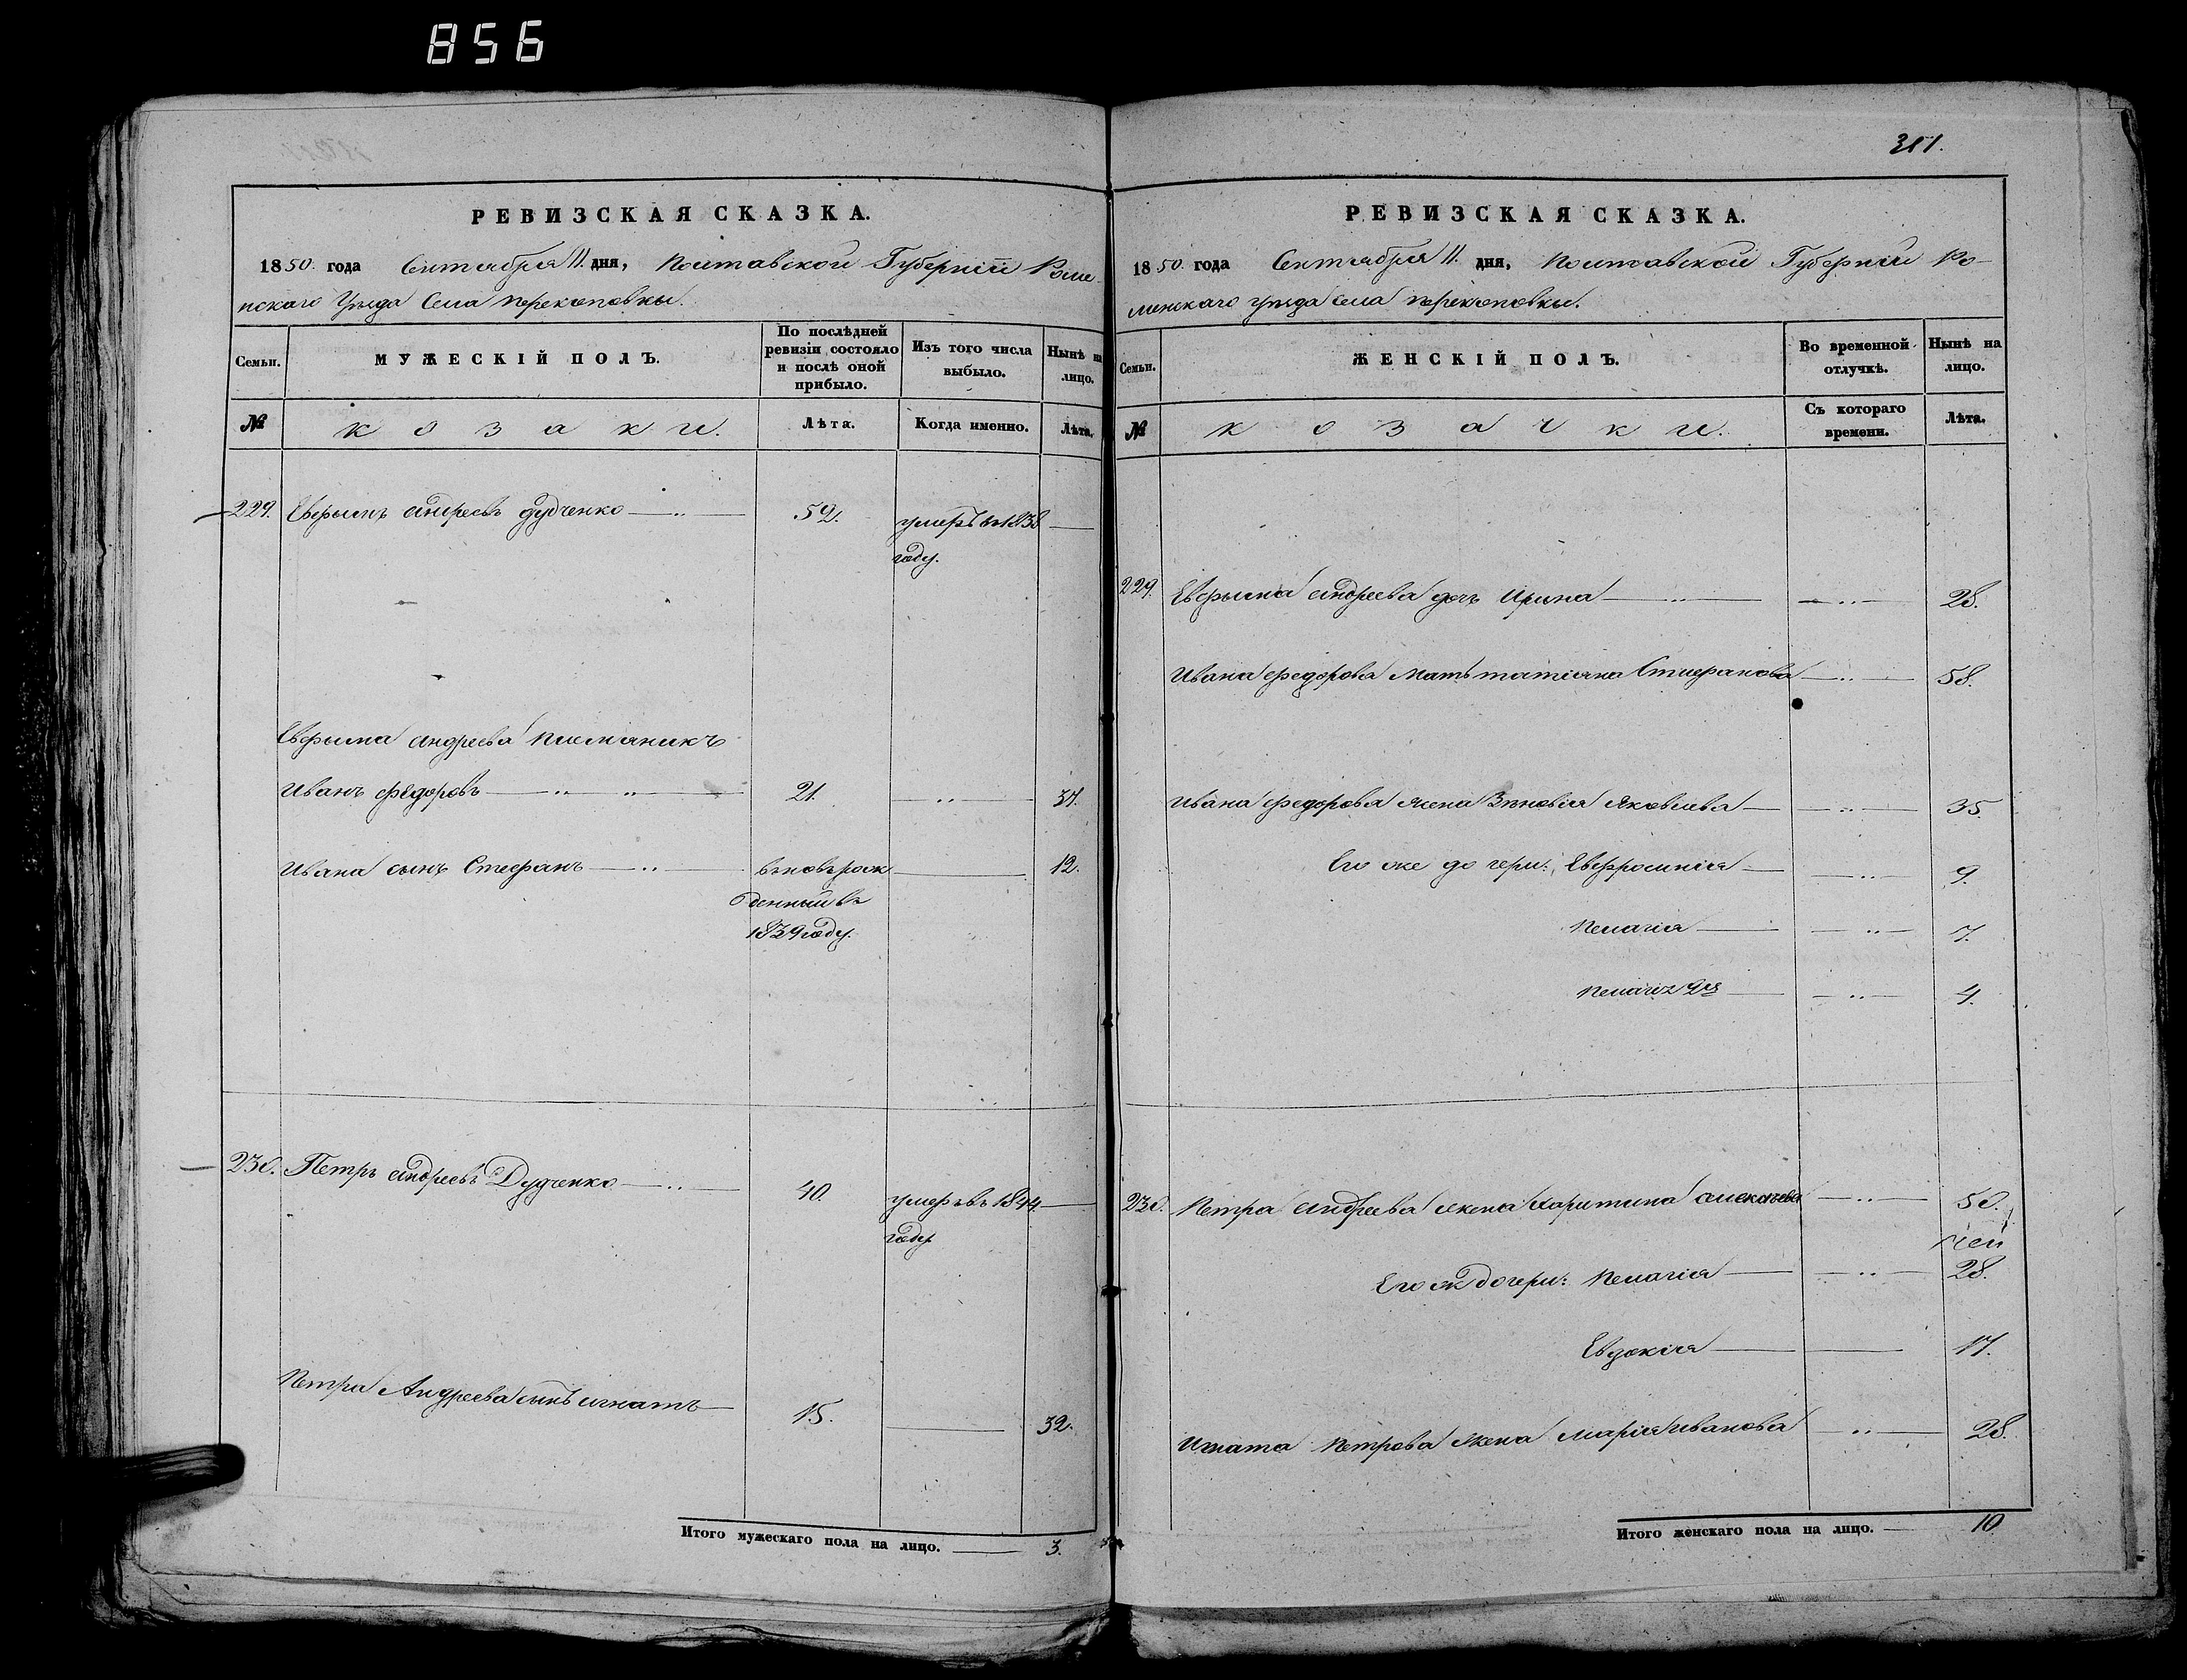 856
РЕВИЗСКАЯ СКАЗКА.
1850. года Сентября 11. дня, Полтавской Губерніи Роме-
нскаго Уѣзда Села Перекоповки.
Семьи.
МУЖЕСКІЙ ПОЛЪ.
По послѣдней ревизіи состояло и послѣ оной прибыло.
Изъ того числа выбыло.
Нынѣ на лицо.
№
козаки.
Лѣта.
Когда именно.
Лѣта.
229. Евфимъ Андреевъ Дудченко 59. умеръ въ 1838
году.
Евфима Андреева племяникъ
Иванъ Федоровъ 21. 37.
Ивана сынъ Стефанъ вновь рож 12.
денный въ
1839 году.
230. Петръ Андреевъ Дудченко 40. умеръ въ 1844
году
Петра Андреева сынъ Игнатъ 15. 32.
Итого мужескаго пола на лицо. 3.
311.
РЕВИЗСКАЯ СКАЗКА.
1850. года Сентября 11. дня, Полтавской Губерніи Ро-
менскаго уѣзда села Перекоповки.
Семьи.
ЖЕНСКІЙ ПОЛЪ.
Во временной отлучкѣ.
Нынѣ на лицо.
№
козачки.
Съ котораго времени.
Лѣта.
229. Евфима Андреева дочь Ирина 28.
Ивана Федорова мать Татіяна Стефанова 58.
Ивана Федорова жена Зѣновія Яковлева 35.
Его же дочери: Евфросинія 9.
Пелагія 7.
Пелагія 2я 4.
230. Петра Андреева жена Харитина Алексѣева 50.
Его ж дочери: Пелагія 28.
Евдокія 17.
Игната Петрова жена Марія Иванова 28.
Итого женскаго пола на лицо. 10